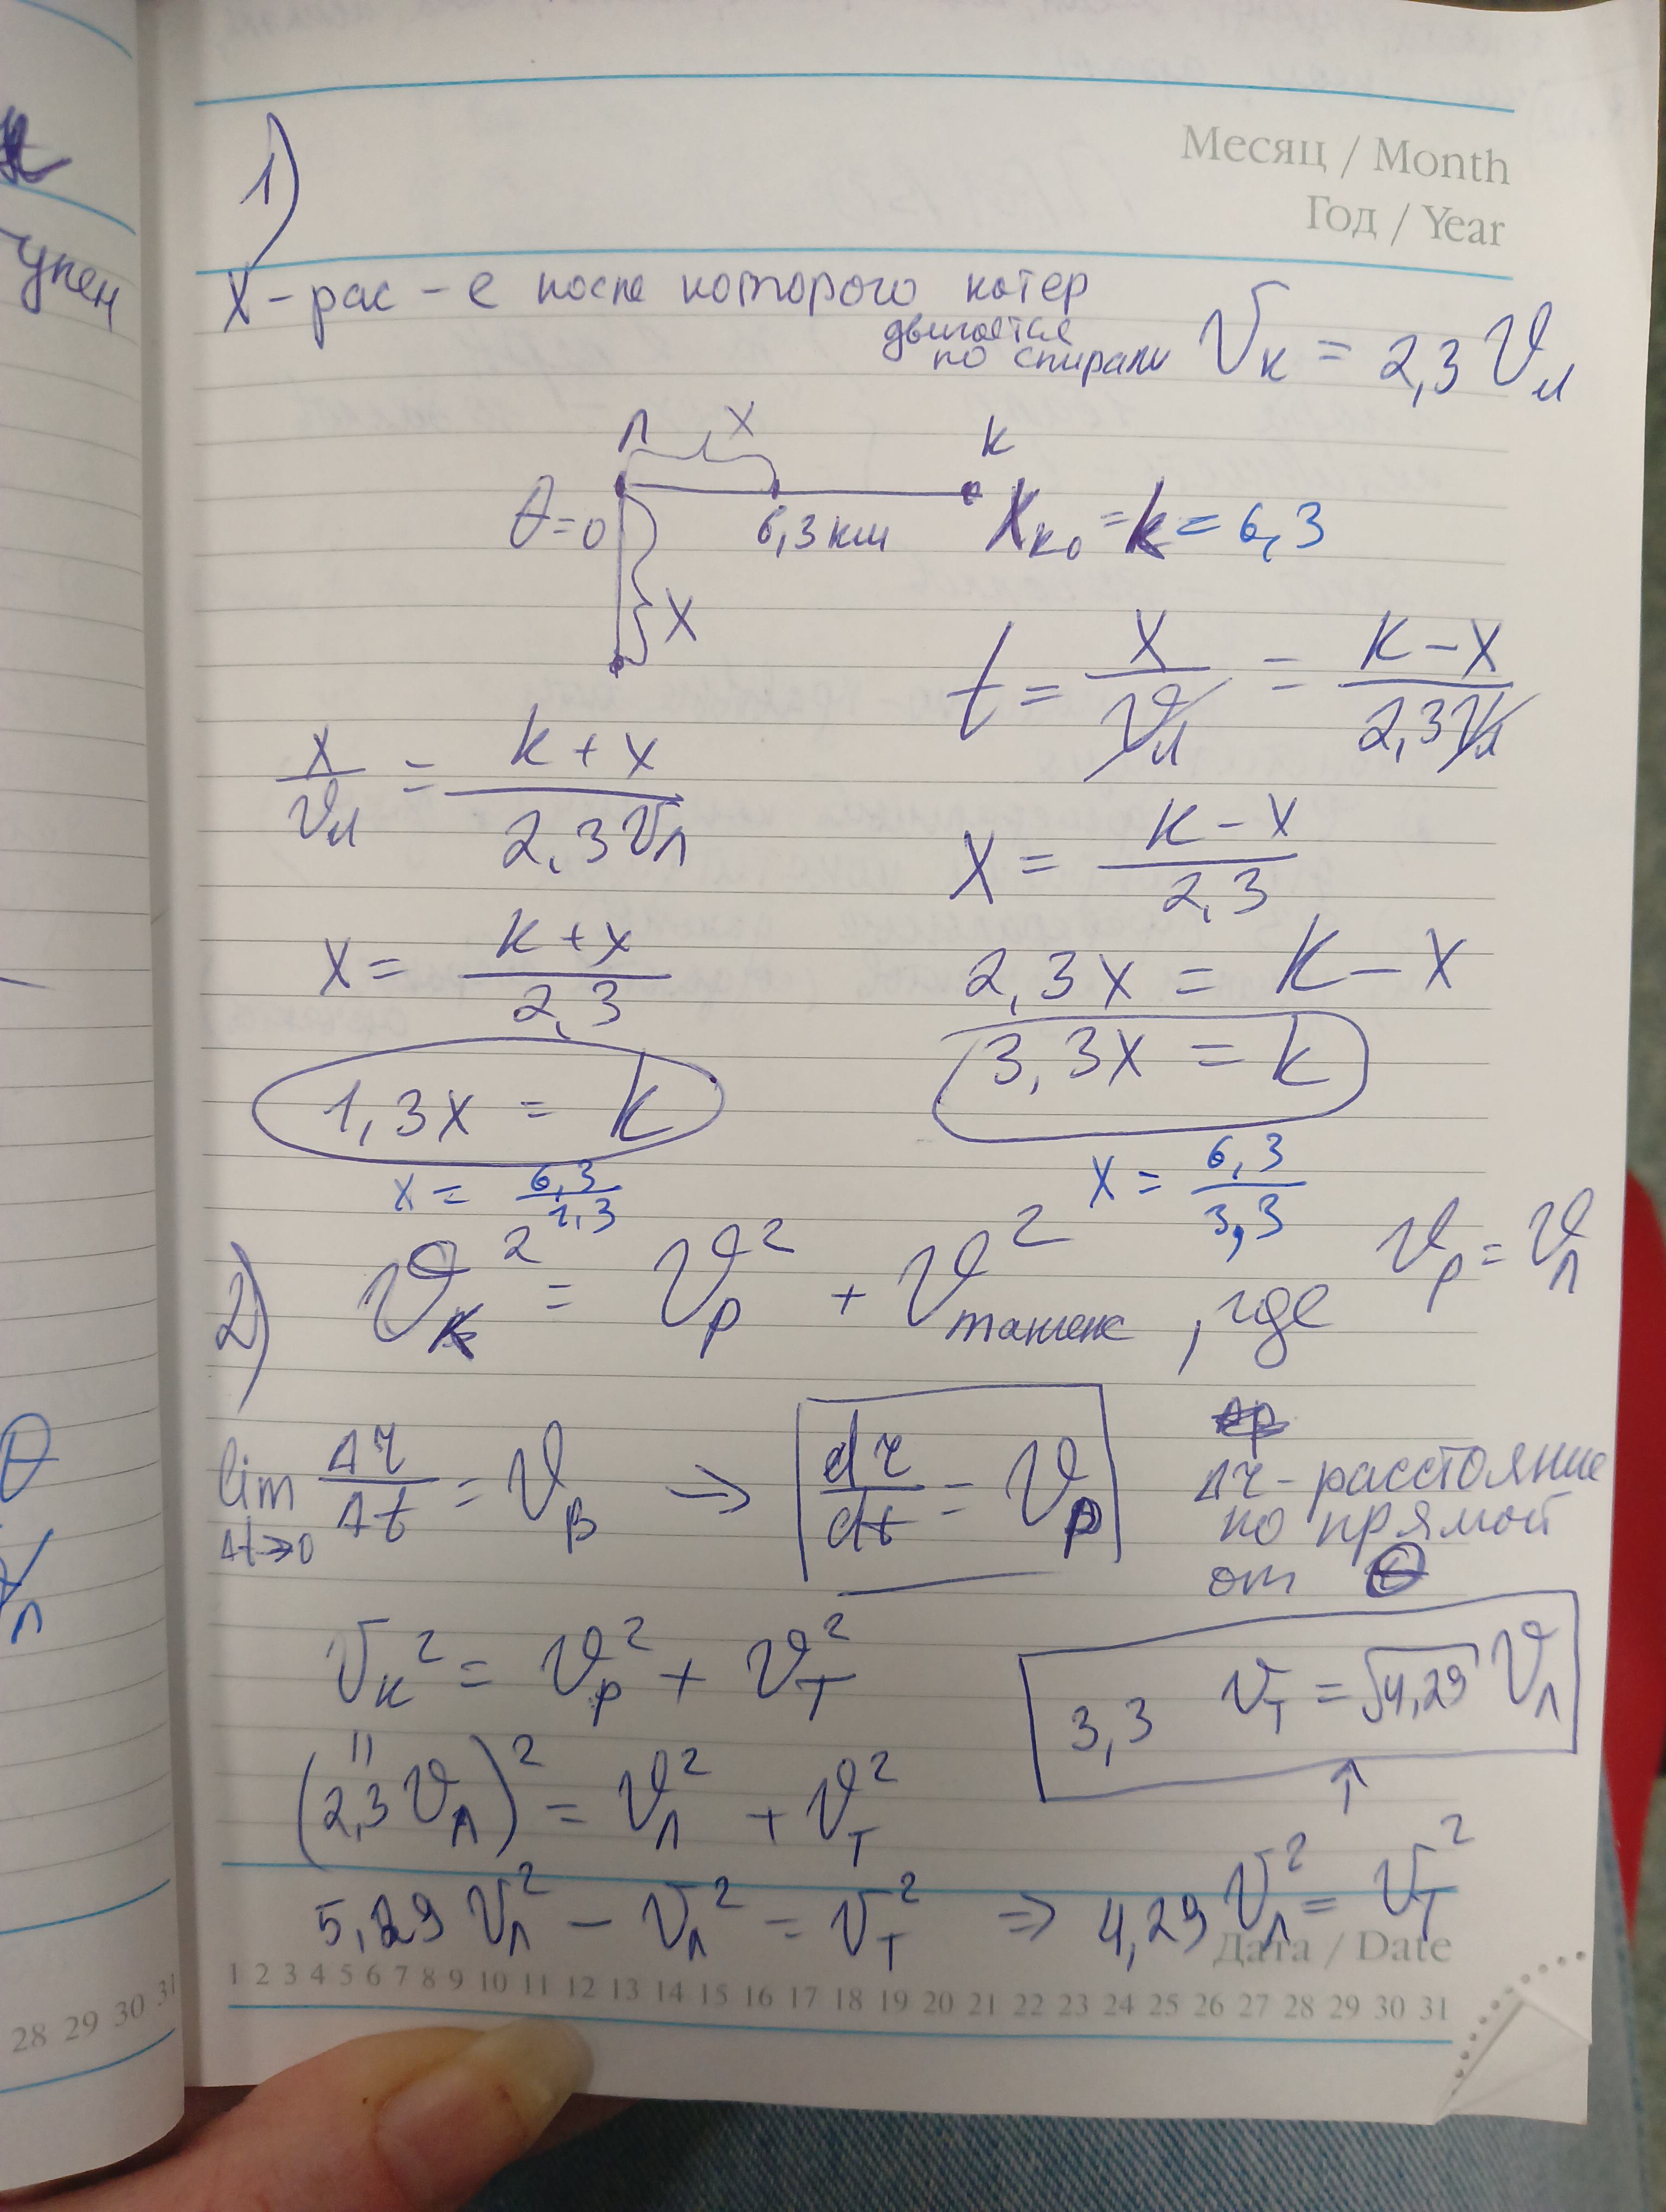 упен
θ
28 29 30 31
Месяц / Month
Год / Year
1)
X - рас - е после которого катер
двигается
по спирали
Vк = 2,3 Vл
л X k
θ=0 6,3 км Xк₀ = k = 6,3
X
t = X/Vл = (k - X)/(2,3 Vл)
X/Vл = (k + X)/(2,3 Vл)
X = (k - X)/2,3
X = (k + X)/2,3
2,3X = k - X
3,3X = k
1,3X = k
X = 6,3/3,3
X = 6,3/1,3
2) Vк² = Vр² + Vтангенс², где Vр = Vл
lim Δt→0 Δr/Δt = Vв → dr/dt = Vр
Δr - расстояние
по прямой
от
Vк² = Vр² + Vт²
3,3 Vт = √4,29 Vл
(2,3 Vл)² = Vл² + Vт²
5,29 Vл² - Vл² = Vт² ⇒ 4,29 Vл² = Vт²
Дата / Date
1 2 3 4 5 6 7 8 9 10 11 12 13 14 15 16 17 18 19 20 21 22 23 24 25 26 27 28 29 30 31